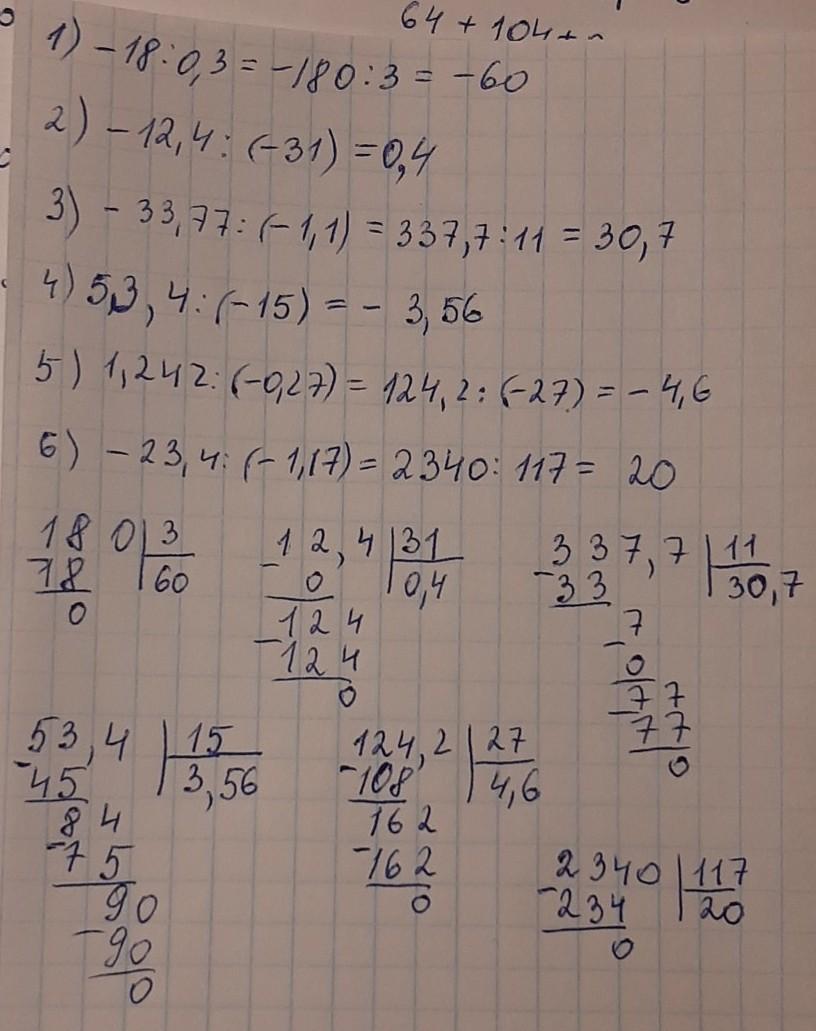 64 + 104 +
1) -18:0,3 = -180:3 = -60
2) -12,4:(-31) = 0,4
3) -33,77:(-1,1) = 337,7:11 = 30,7
4) 53,4:(-15) = -3,56
5) 1,242:(-0,27) = 124,2:(-27) = -4,6
6) -23,4:(-1,17) = 2340:117 = 20
180 | 3
18 | 60
0
-12,4 | 31
0 | 0,4
-124
124
0
-337,7 | 11
33 | 30,7
-7
0
-77
77
0
-53,4 | 15
45 | 3,56
84
-75
90
-90
0
-124,2 | 27
108 | 4,6
162
-162
0
-2340 | 117
234 | 20
0